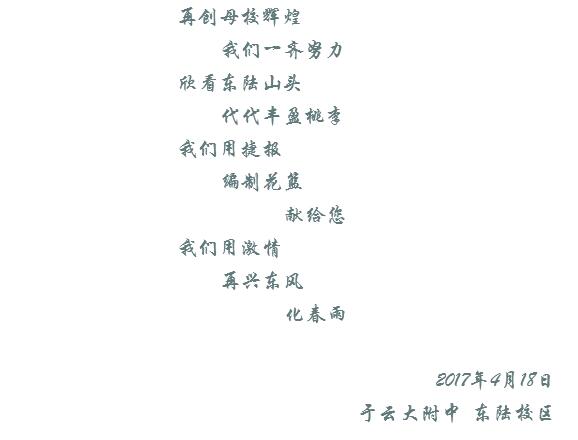 再创母校辉煌
我们一齐努力
欣看东陆山头
代代丰盈桃李
我们用捷报
编制花篮
献给您
我们用激情
再兴东风
化春雨
2017年4月18日
于云大附中 东陆校区